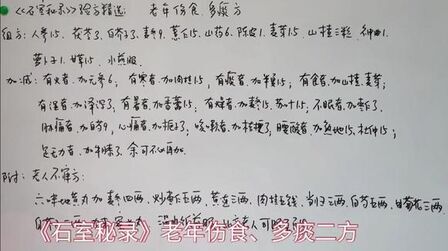 《石室秘录》验方精选: 老年伤食、多痰方
组方: 人参15、茯苓3、白芥子3、麦冬9、薏仁15、山药6、陈皮1、麦芽15、山楂三粒、神曲1
萝卜子1、甘草15、水煎服
加减: 有火者、加元参6; 有寒者、加肉桂15; 有痰者、加半夏15; 有食者、加山楂、麦芽;
有湿者、加泽泻3; 有暑者、加香薷15; 有燥者、加麦冬15、苏叶15; 不眠者、加枣仁3
胁痛者、加白芍9; 心痛者、加栀子3; 咳嗽者、加桔梗3; 腰酸者、加熟地15、杜仲15;
足无力者、加牛膝3、余可不必再加。
附: 老人不寐方:
六味地黄丸加麦冬四两、炒枣仁五两、黄连三两、肉桂五钱、当归三两、白芍五两、甘菊花三两
《石室秘录》老年伤食、多痰二方